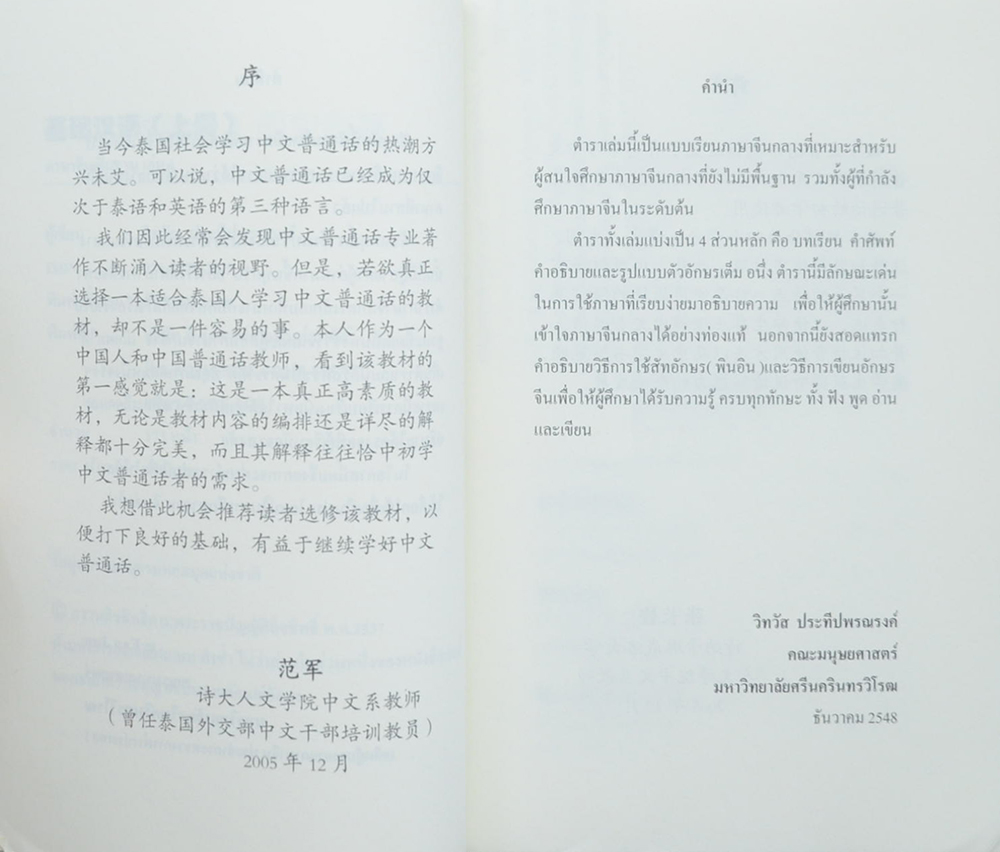 序
当今泰国社会学习中文普通话的热潮方
兴未艾。可以说，中文普通话已经成为仅
次于泰语和英语的第三种语言。
我们因此经常会发现中文普通话专业著
作不断涌入读者的视野。但是，若欲真正
选择一本适合泰国人学习中文普通话的教
材，却不是一件容易的事。本人作为一个
中国人和中国普通话教师，看到该教材的
第一感觉就是：这是一本真正高素质的教
材，无论是教材内容的编排还是详尽的解
释都十分完美，而且其解释往往恰中初学
中文普通话者的需求。
我想借此机会推荐读者选修该教材，以
便打下良好的基础，有益于继续学好中文
普通话。
范军
诗大人文学院中文系教师
（曾任泰国外交部中文干部培训教员）
2005 年 12 月
คำนำ
ตำราเล่มนี้เป็นแบบเรียนภาษาจีนกลางที่เหมาะสำหรับ
ผู้สนใจศึกษาภาษาจีนกลางที่ยังไม่มีพื้นฐาน รวมทั้งผู้ที่กำลัง
ศึกษาภาษาจีนในระดับต้น
ตำราทั้งเล่มแบ่งเป็น 4 ส่วนหลัก คือ บทเรียน คำศัพท์
คำอธิบายและรูปแบบตัวอักษรเต็ม อนึ่ง ตำรานี้มีลักษณะเด่น
ในการใช้ภาษาที่เรียบง่ายมาอธิบายความ เพื่อให้ผู้ศึกษานั้น
เข้าใจภาษาจีนกลางได้อย่างท่องแท้ นอกจากนี้ยังสอดแทรก
คำอธิบายวิธีการใช้สัทอักษร( พินอิน )และวิธีการเขียนอักษร
จีนเพื่อให้ผู้ศึกษาได้รับความรู้ ครบทุกทักษะ ทั้ง ฟัง พูด อ่าน
และเขียน
วิทวัส ประทีปพรณรงค์
คณะมนุษยศาสตร์
มหาวิทยาลัยศรีนครินทรวิโรฒ
ธันวาคม 2548